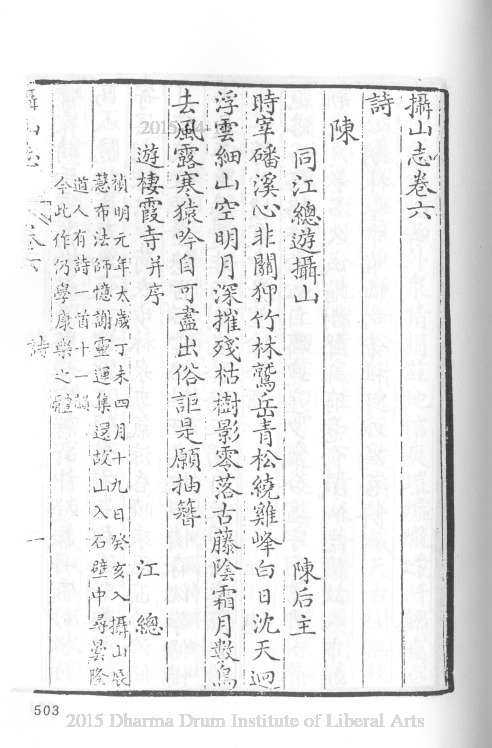 攝山志卷六
詩
陳
同江總遊攝山 陳后主
時宰磻溪心非關狎竹林鷲岳青松繞雞峰白日沈天迥
浮雲細山空明月深摧殘枯樹影零落古藤陰霜月夜烏
去風露寒猿吟自可盡出俗詎是願抽簪
遊棲霞寺并序 江總
禎明元年太歲丁未四月十九日癸亥入攝山展
慧布法師憶謝靈運集還故山入石壁中尋曇隆
道人有詩一首十一韻
今此作仍學康樂之體
攝山志 卷六 詩 一
503
2015 Dharma Drum Institute of Liberal Arts